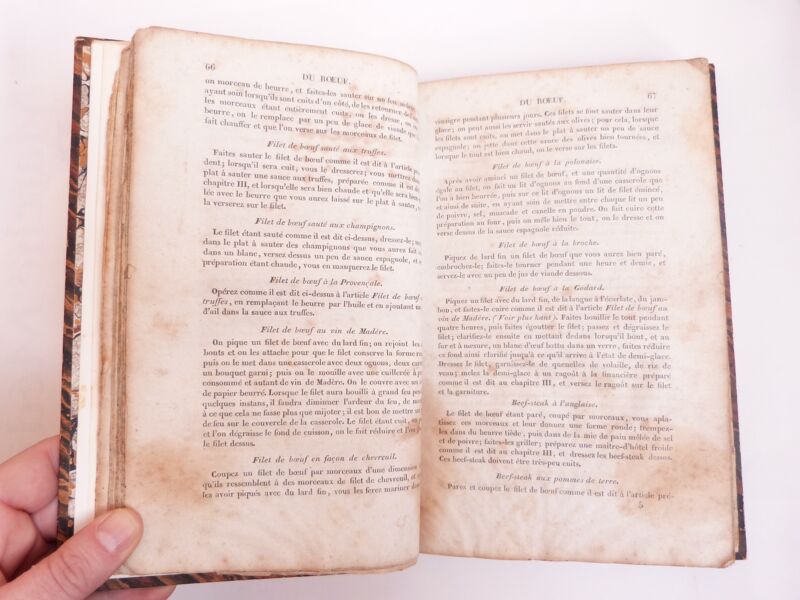 66
DU BŒUF.
un morceau de beurre, et faites-les sauter sur un feu
ayant soin lorsqu'ils sont cuits d'un côté, de les retourner
les morceaux étant entièrement cuits, on les dresse, on
beurre, on le remplace par un peu de glace de viande que
fait chauffer et que l'on verse sur les morceaux de filet.
Filet de bœuf sauté aux truffes.
Faites sauter le filet de bœuf comme il est dit à l'article
dent; lorsqu'il sera cuit, vous le dresserez; vous mettrez dans
plat à sauter une sauce aux truffes, préparée comme il est
chapitre III, et lorsqu'elle sera bien chaude et qu'elle
lée avec le beurre que vous aurez laissé sur le plat à sauter,
la verserez sur le filet.
Filet de bœuf sauté aux champignons.
Le filet étant sauté comme il est dit ci-dessus, dressez-le;
dans le plat à sauter des champignons que vous aurez fait
dans un blanc, versez dessus un peu de sauce espagnole, et
préparation étant chaude, vous en masquerez le filet.
Filet de bœuf à la Provençale.
Opérez comme il est dit ci-dessus à l'article Filet de bœuf
truffes, en remplaçant le beurre par l'huile et en ajoutant un
d'ail dans la sauce aux truffes.
Filet de bœuf au vin de Madère.
On pique un filet de bœuf avec du lard fin; on rejoint les
bouts et on les attache pour que le filet conserve la forme
puis on le met dans une casserole avec deux ognons, deux
un bouquet garni; puis on le mouille avec une cuillerée à
consommé et autant de vin de Madère. On le couvre avec un
de papier beurré. Lorsque le filet aura bouilli à grand feu
quelques instans, il faudra diminuer l'ardeur du feu, de
à ce que cela ne fasse plus que mijoter; il est bon de mettre
de feu sur le couvercle de la casserole. Le filet étant cuit, on
et l'on dégraisse le fond de cuisson, on le fait réduire et l'on
le filet dessus.
Filet de bœuf en façon de chevreuil.
Coupez un filet de bœuf par morceaux d'une dimension
qu'ils ressemblent à des morceaux de filet de chevreuil, et
les avoir piqués avec du lard fin, vous les ferez mariner dans
DU BŒUF.
67
vinaigre pendant plusieurs jours. Ces filets se font sauter dans leur
glace; on peut aussi les servir sautés aux olives; pour cela, lorsque
les filets sont cuits, on met dans le plat à sauter un peu de sauce
espagnole; on jette dans cette sauce des olives bien tournées, et
lorsque le tout est bien chaud, on le verse sur les filets.
Filet de bœuf à la polonaise.
Après avoir émincé un filet de bœuf, et une quantité d'ognons
égale au filet, on fait un lit d'ognons au fond d'une casserole que
l'on a bien beurrée, puis sur ce lit d'ognons un lit de filet émincé,
et ainsi de suite, en ayant soin de mettre entre chaque lit un peu
de poivre, sel, muscade et canelle en poudre. On fait cuire cette
préparation au four, puis on mêle bien le tout, on le dresse et on
verse dessus de la sauce espagnole réduite.
Filet de bœuf à la broche.
Piquez de lard fin un filet de bœuf que vous aurez bien paré,
embrochez-le; faites-le tourner pendant une heure et demie, et
servez-le avec un peu de jus de viande dessous.
Filet de bœuf à la Godard.
Piquez un filet avec du lard fin, de la langue à l'écarlate, du jam-
bon, et faites-le cuire comme il est dit à l'article Filet de bœuf au
vin de Madère. (Voir plus haut). Faites bouillir le tout pendant
quatre heures, puis faites égoutter le filet; passez et dégraissez le
filet; clarifiez-le ensuite en mettant dedans lorsqu'il bout, et au
fur et à mesure, un blanc d'œuf battu dans un verre, faites réduire
ce fond ainsi clarifié jusqu'à ce qu'il arrive à l'état de demi-glace.
Dressez le filet; garnissez-le de quenelles de volaille, de riz de
veau; mêlez la demi-glace à un ragoût à la financière préparé
comme il est dit au chapitre III, et versez le ragoût sur le filet
et la garniture.
Beef-steak à l'anglaise.
Le filet de bœuf étant paré, coupé par morceaux, vous apla-
tissez ces morceaux et leur donnez une forme ronde; trempez-
les dans du beurre tiède, puis dans de la mie de pain mêlée de sel
et de poivre; faites-les griller; préparez une maître-d'hôtel froide
comme il est dit au chapitre III, et dressez les beef-steak dessus.
Ces beef-steak doivent être très-peu cuits.
Beef-steak aux pommes de terre.
Parez et coupez le filet de bœuf comme il est dit à l'article pré-
5